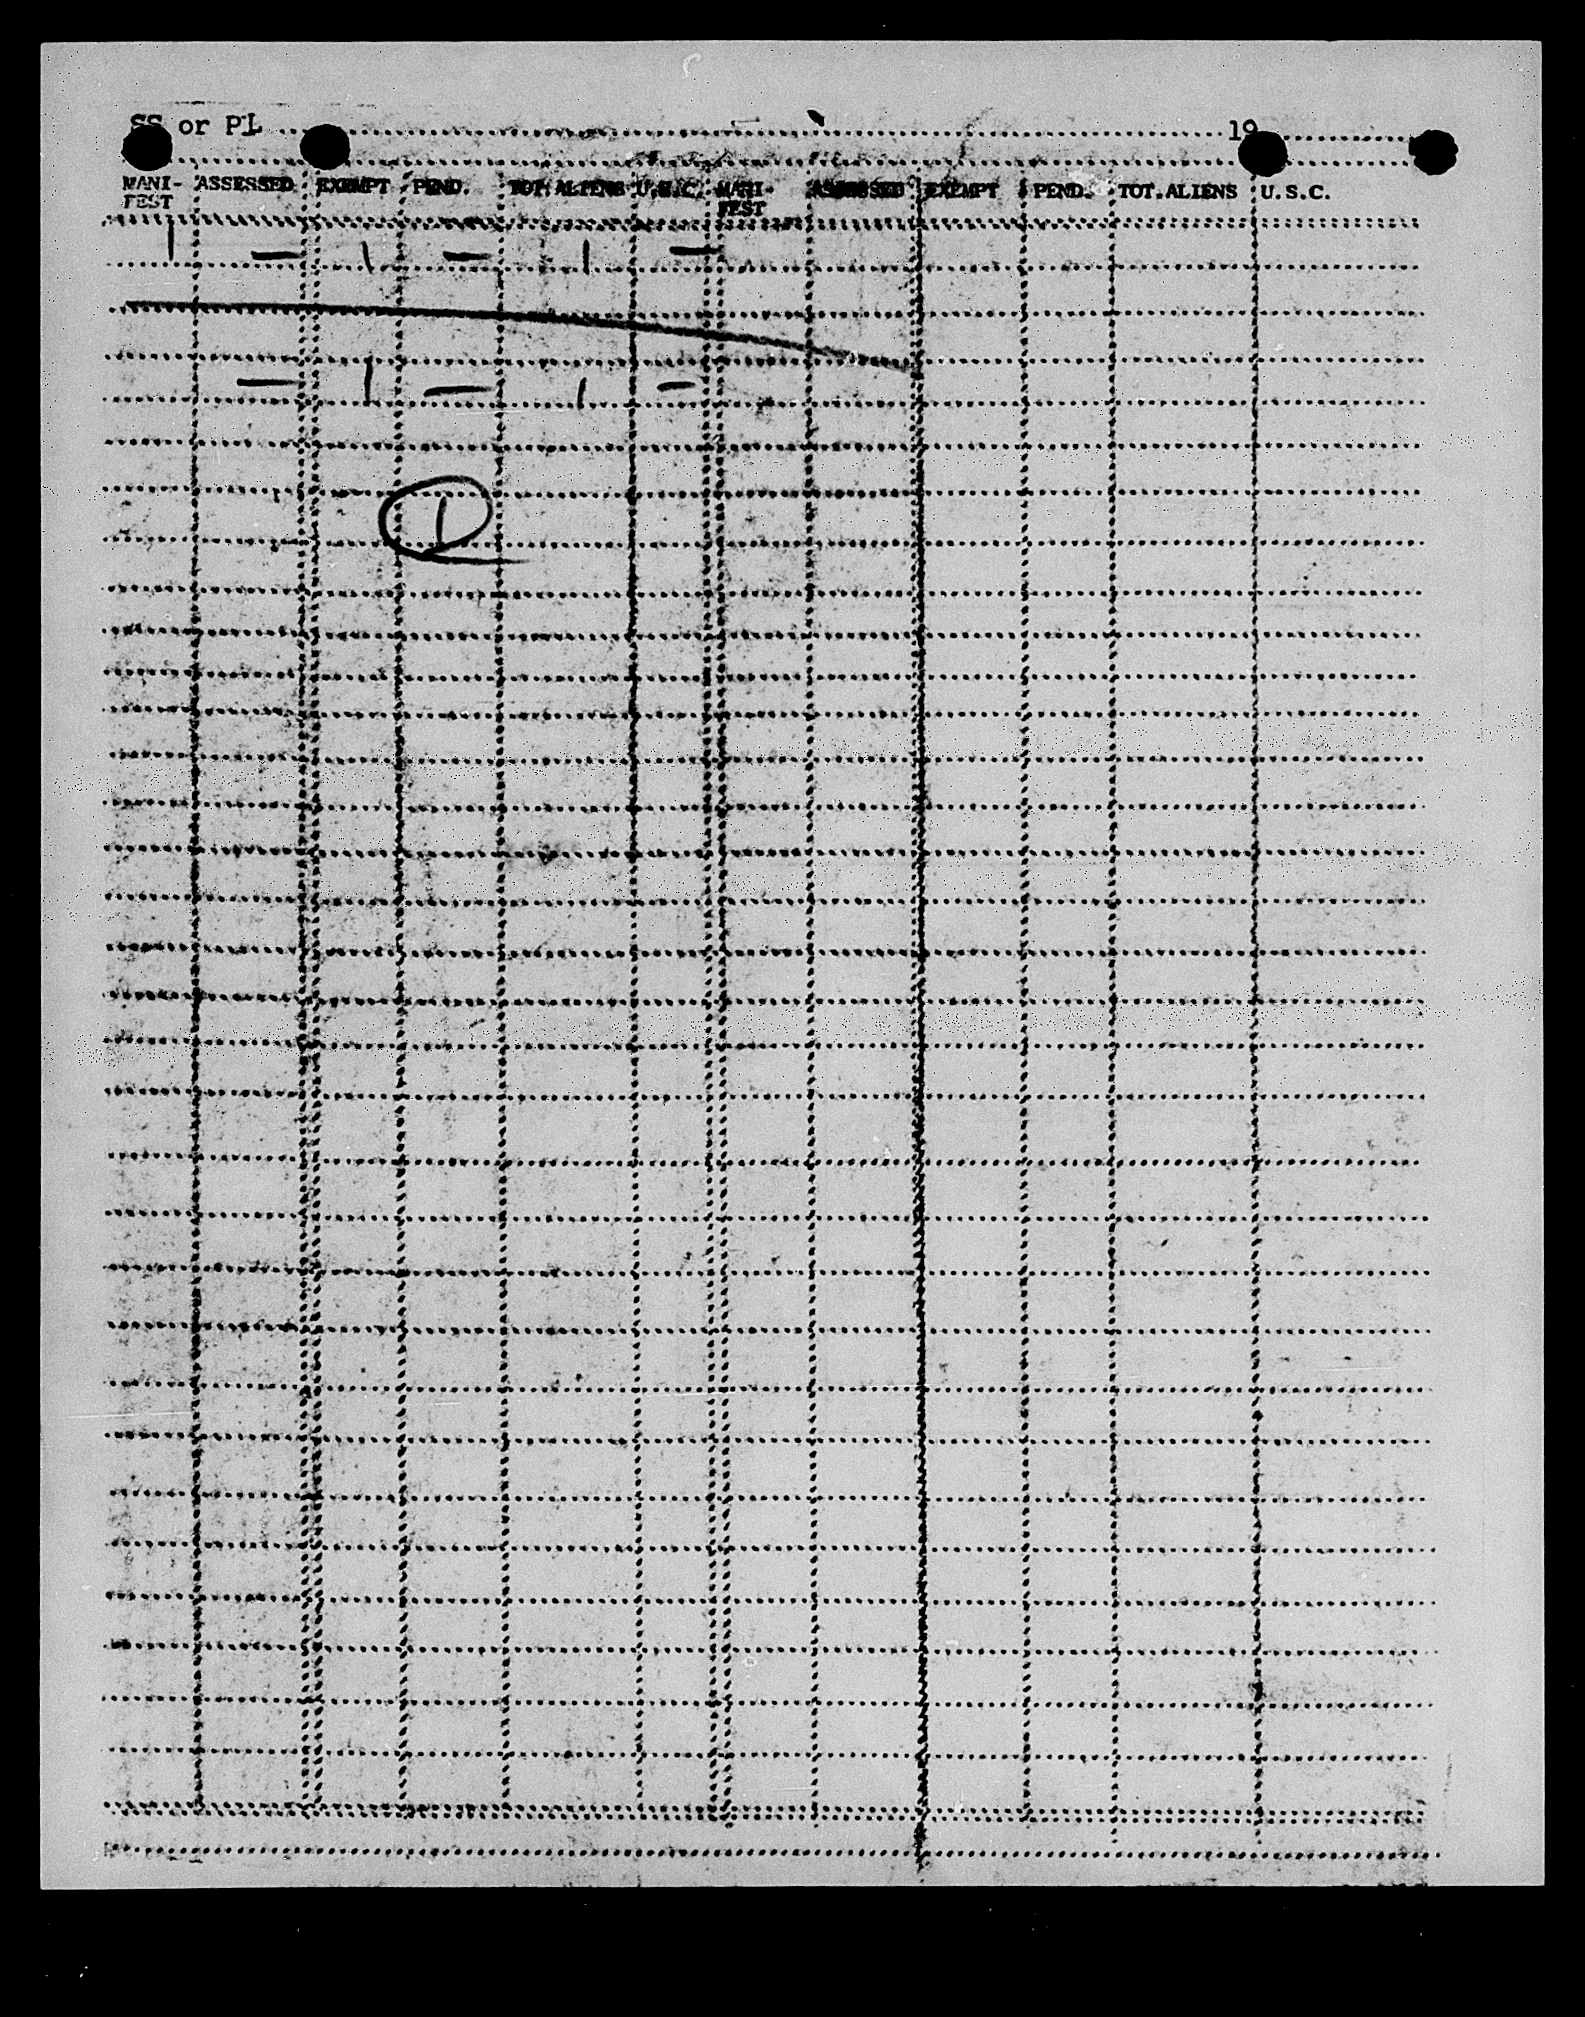 SS or PL 19
MANI- ASSESSED EXEMPT PEND. TOT.ALIENS U.S.C. MANI- ASSESSED EXEMPT PEND. TOT.ALIENS U.S.C.
FEST FEST
1 — 1 — 1 —
— 1 — 1 —
1